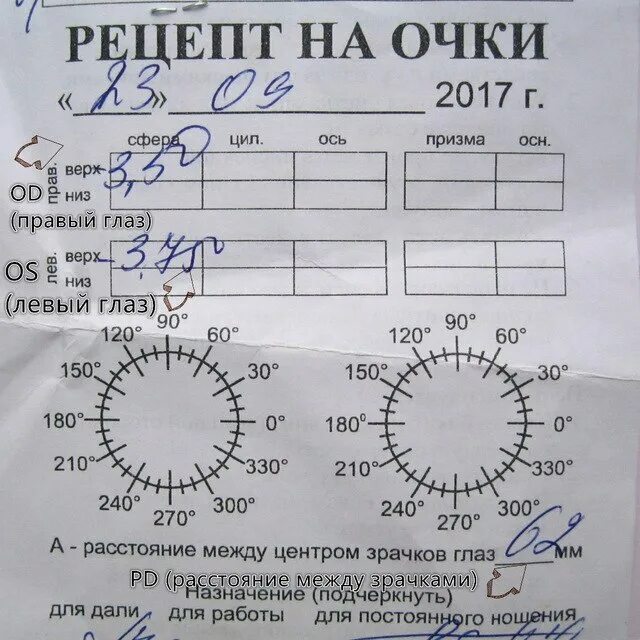 РЕЦЕПТ НА ОЧКИ
«23» 09 2017 г.
сфера цил. ось призма осн.
OD (правый глаз)
прав.
верх -3,50
низ
OS (левый глаз)
лев.
верх -3,75
низ
90° 60° 30° 0° 330° 300° 270° 240° 210° 180° 150° 120°
90° 60° 30° 0° 330° 300° 270° 240° 210° 180° 150° 120°
А - расстояние между центром зрачков глаз 62 мм
PD (расстояние между зрачками)
Назначение (подчеркнуть)
для дали для работы для постоянного ношения